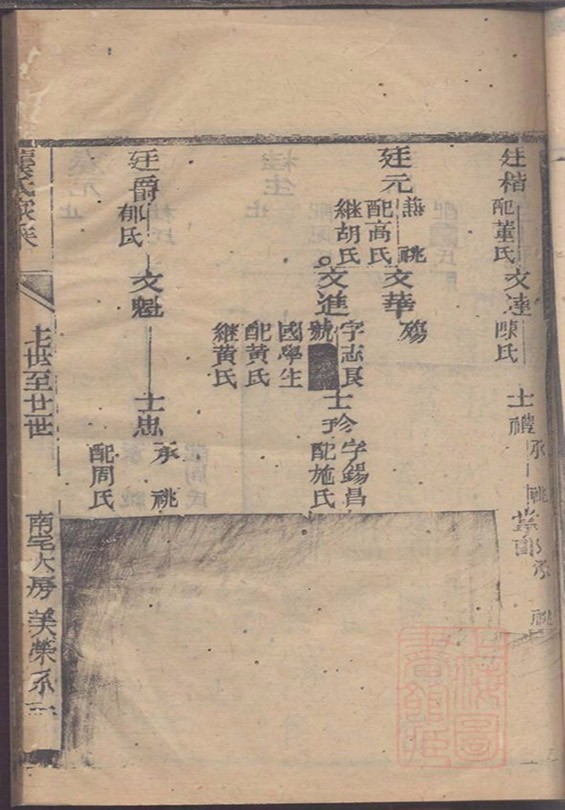 廷楷
配董氏
文達
陳氏
士禮
承祧
承
祧
廷元
兼祧
配高氏
継胡氏
文華
殤
文進
字志良
號
國學生
配黃氏
継黃氏
士珍
字錫昌
配施氏
廷爵
郁氏
文魁
士忠
承祧
配周氏
世至廿世
南宅大房
美榮系